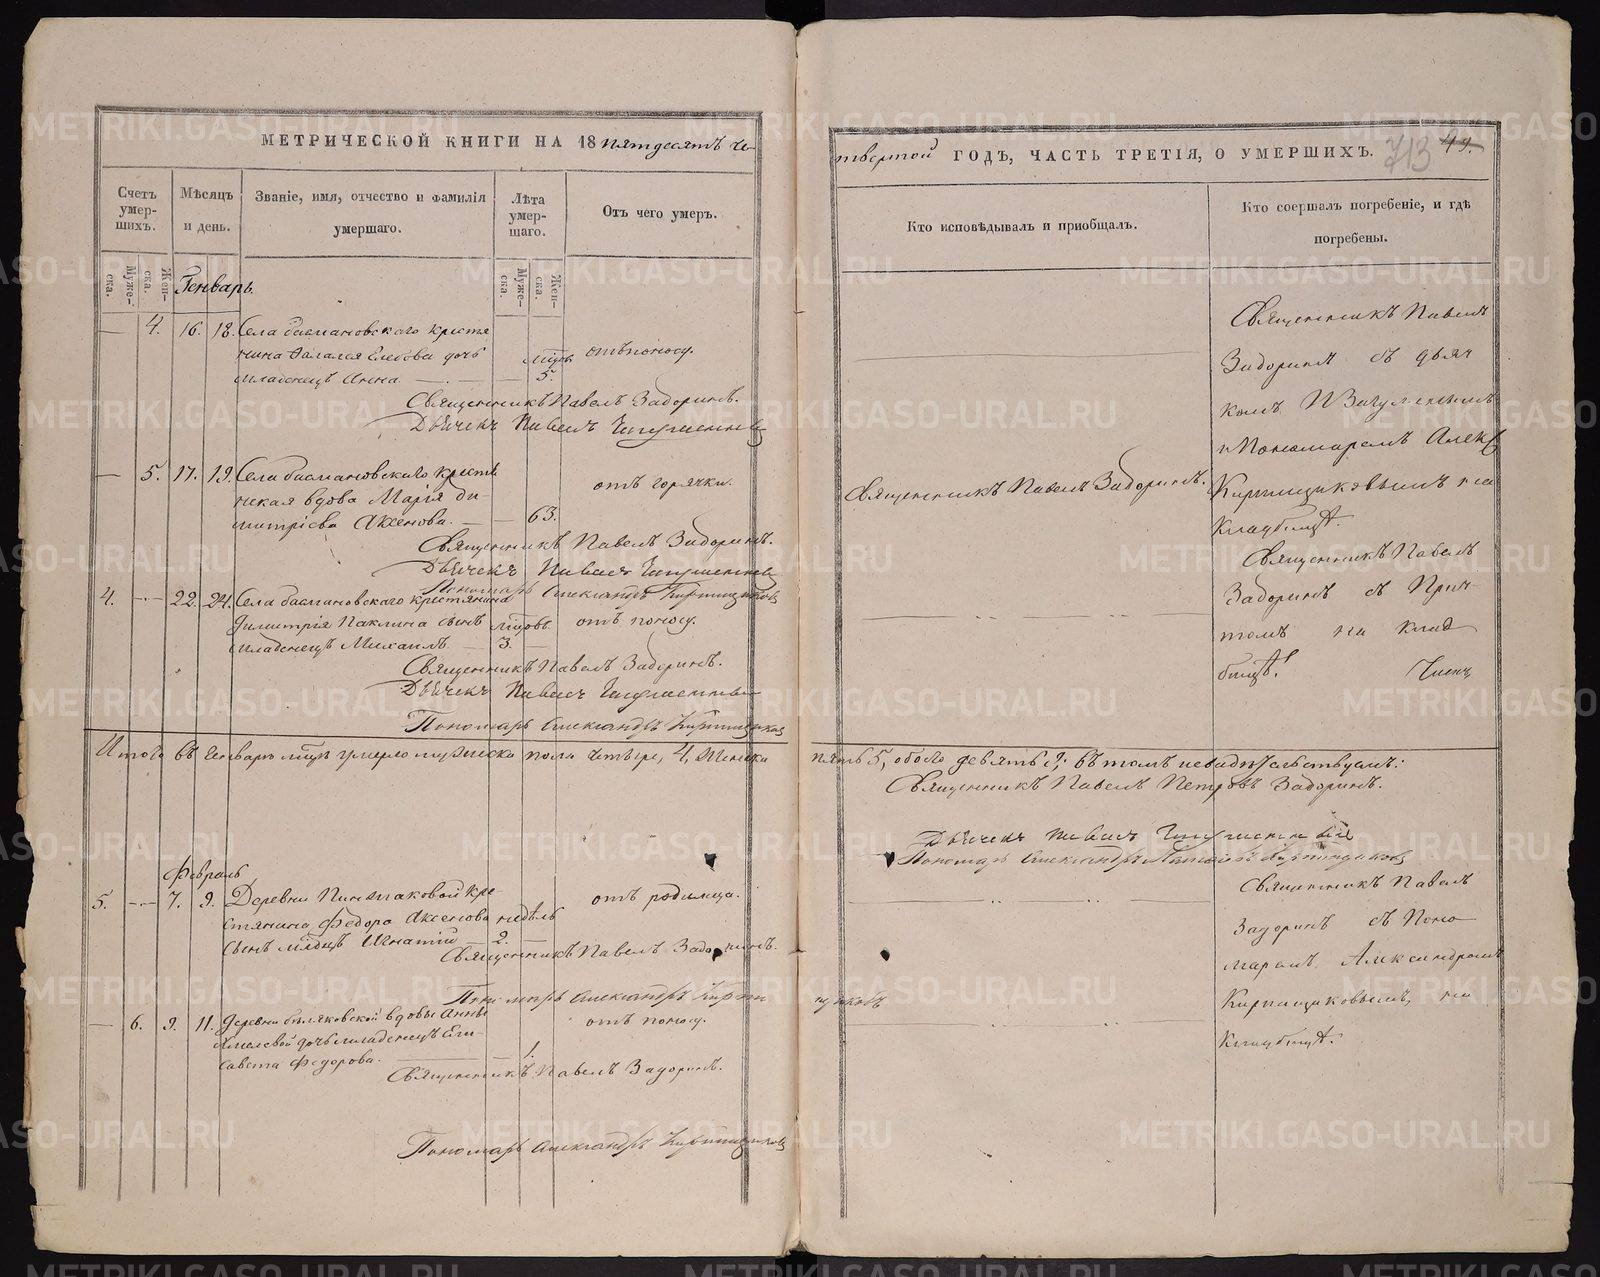 МЕТРИЧЕСКОЙ КНИГИ НА 18 пятдесятъ че-
Счетъ умер- шихъ.
Мѣсяцъ и день.
Званіе, имя, отчество и фамилія умершаго.
Лѣта умер- шаго.
Отъ чего умеръ.
Муже- ска.
Жен- ска.
Генварь.
Муже- ска.
Жен- ска.
— 4. 16. 18. Села басмановскаго крестя
нина Глебова дочь мцъ отъ поносу.
младенецъ Анна — 5.
Священникъ Павелъ Задоринъ.
Дьячекъ Павелъ
— 5. 17. 19. Села басмановскаго кресть
нская вдова Марія Ди- отъ горячки.
митріева Аксенова. — — 63.
Священникъ Павелъ Задоринъ.
Дьячекъ Павелъ
Пономарь Александръ Кирпищиковъ
4. — 22. 24. Села басмановскаго крестянина
Димитрія Паклина сынъ мцовъ отъ поносу.
младенецъ Михаилъ — 3. —
Священникъ Павелъ Задоринъ.
Дьячекъ Павелъ
Пономарь Александръ Кирпищиковъ
Итого въ Генварѣ мцѣ умерло мужеска пола четыре, 4, женска
Февраль
5. — 7. 9. Деревни кре-
стянина Федора Аксенова недѣль отъ родимца.
сынъ млдцъ Игнатій — 2. —
Священникъ Павелъ Задоринъ.
Пономарь Александръ Кирпи
— 6. 9. 11. Деревни бѣляковской вдовы Анны отъ поносу.
дочь младенецъ Ели-
савета Федорова. — 1.
Священникъ Павелъ Задоринъ.
Пономарь Александръ Кирпищиковъ
твертой ГОДЪ, ЧАСТЬ ТРЕТІЯ, О УМЕРШИХЪ. 713 49.
Кто исповѣдывалъ и пріобщалъ.
Кто совершалъ погребеніе, и гдѣ погребены.
Священникъ Павелъ
Задоринъ съ дьяч
комъ
и Пономаремъ Алекс
Кирпищиковымъ на
кладбищѣ.
Священникъ Павелъ Задоринъ.
Священникъ Павелъ
Задоринъ съ Прич-
томъ на клад
бищѣ.
пять 5, обоего девять 9; въ томъ свидѣтельствуемъ:
Священникъ Павелъ Петровъ Задоринъ.
Дьячекъ Павелъ
Пономарь Александръ Кирпищиковъ
Священникъ Павелъ
Задоринъ съ Поно
маремъ Александромъ
Кирпищиковымъ, на
кладбищѣ.
щиковъ
METRIKI.GASO-URAL.RU